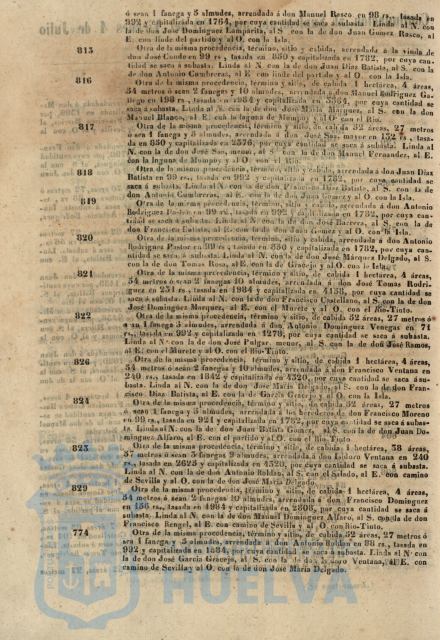 ó sean 1 fanega y 5 almudes, arrendada á don Manuel Rasco en 98 rs., tasada en
992 y capitalizada en 1764, por cuya cantidad se saca á subasta. Linda al N. con
la de don José Dominguez Lamparita, al S. con la de don Juan Gomez Rasco, al
E. con linde del partido y al O. con la Isla.
815 Otra de la misma procedencia, término, sitio y cabida, arrendada á la viuda de
don José Conde en 99 rs., tasada en 850 y capitalizada en 1782, por cuya can-
tidad se saca á subasta. Linda al N. con la de don Juan Diaz Batista, al S. con la
de don Antonio Cumbreras, al E. con linde del partido y al O. con la Isla.
816 Otra de la misma procedencia, término y sitio, de cabida 1 hectárea, 4 áreas,
34 metros ó sean 2 fanegas y 10 almudes, arrendada á don Manuel Rodriguez Ga-
llego en 198 rs., tasada en 1984 y capitalizada en 3564, por cuya cantidad se
saca á subasta. Linda al N. con la de don José Maria Márquez, al S. con la de don
Manuel Blanco, al E. con la laguna de Mumpoy y al O. con el Rio.
817 Otra de la misma procedencia, término y sitio, de cabida 32 áreas, 27 metros
ó sean 1 fanega y 5 almudes, arrendada á don José Sus, mayor en 132 rs., tasa-
da en 850 y capitalizada en 2376, por cuya cantidad se saca á subasta. Linda al
N. con la de don José Sus, menor, al S. con la de don Manuel Fernandez, al E.
con la laguna de Mumpoy y al O. con el Rio.
818 Otra de la misma procedencia, término, sitio y cabida, arrendada á don Juan Diaz
Batista en 99 rs., tasada en 992 y capitalizada en 1782, por cuya cantidad se
saca á subasta. Linda al N. con la de don Diaz Batista, al S. con la de
don Antonio Cumbreras, al E. con la de don Juan Gomez y al O. con la Isla.
819 Otra de la misma procedencia, término, sitio y cabida, arrendada á don Antonio
Rodriguez Pastor en 99 rs., tasada en 992 y capitalizada en 1782, por cuya can-
tidad se saca á subasta. Linda al N. con la de don José Barrera, al S. con la de
don Francisco Batista, al E. con la de don Juan Gomez y al O. con la Isla.
820 Otra de la misma procedencia, término, sitio y cabida, arrendada á don Antonio
Rodriguez Pastor en 99 rs., tasada en 850 y capitalizada en 1782, por cuya can-
tidad se saca á subasta. Linda al N. con la de don José Márquez Delgado, al S.
con la de don Tomas Rosa, al E. con la de Gracejo y al O. con la Isla.
821 Otra de la misma procedencia, término y sitio, de cabida 1 hectárea, 4 áreas,
34 metros ó sean 2 fanegas 10 almudes, arrendada á don José Tomas Rodri-
guez en 231 rs., tasada en 1984 y capitalizada en 4158, por cuya cantidad se
saca á subasta. Linda al N. con la de don Francisco Castellano, al S. con la de don
José Dominguez Marquez, al E. con el Murete y al O. con el Rio-Tinto.
822 Otra de la misma procedencia, término y sitio, de cabida 32 áreas, 27 metros ó
sean 1 fanega 5 almudes, arrendada á don Antonio Dominguez Venegas en 71
rs., tasada en 992 y capitalizada en 1278, por cuya cantidad se saca á subasta.
Linda al N. con la de don José Pulgar, menor, al S. con la de don José Ramos,
al E. con el Murete y al O. con el Rio-Tinto.
826 Otra de la misma procedencia, término y sitio, de cabida 1 hectárea, 4 áreas,
34 metros ó sean 2 fanegas y 10 almudes, arrendada á don Francisco Ventana en
240 rs., tasada en 1842 y capitalizada en 4320, por cuya cantidad se saca á su-
basta. Linda al N. con la de don José Maria Delgado, al S. con la de don Fran-
cisco Diaz Batista, al E. con la de Garcia Gracejo y al O. con la Isla.
824 Otra de la misma procedencia, término y sitio, de cabida 32 áreas, 27 metros
ó sean 1 fanega y 5 almudes, arrendada á los herederos de don Francisco Moreno
en 99 rs., tasada en 921 y capitalizada en 1782, por cuya cantidad se saca á subas-
ta. Linda al N. con la de don Juan Batista Gomez, al S. con la de don Juan Do-
minguez Alfaro, al E. con el partido y al O. con el Rio Tinto.
825 Otra de la misma procedencia, término y sitio, de cabida 1 hectárea, 38 áreas,
37 metros ó sean 3 fanegas 9 almudes, arrendada á don Isidoro Ventana en 240
rs., tasada en 2625 y capitalizada en 4320, por cuya cantidad se saca á subasta.
Linda al N. con la de don Antonio Roldan, al S. con el Salado, al E. con camino
de Sevilla y al O. con la de don José Maria Delgado.
829 Otra de la misma procedencia, término y sitio, de cabida 1 hectárea, 4 áreas,
34 metros ó sean 2 fanegas 10 almudes, arrendada á don Francisco Dominguez
en 156 rs., tasada en 1984 y capitalizada en 2808, por cuya cantidad se saca á
subasta. Linda al N. con la de don Manuel Dominguez Alfaro, al S. con la de don
Francisco Rengel, al E. con camino de Sevilla y al O. con Rio-Tinto.
774 Otra de la misma procedencia, término y sitio, de cabida 32 áreas, 27 metros ó
sean 1 fanega y 5 almudes, arrendada á don Antonio Roldan en 88 rs., tasada en
992 y capitalizada en 1584, por cuya cantidad se saca á subasta. Linda al N. con
la de don José Garcia Gracejo, al S. con la de don Ventana, al E. con
camino de Sevilla y al O. con la de don José Maria Delgado.
HUELVA